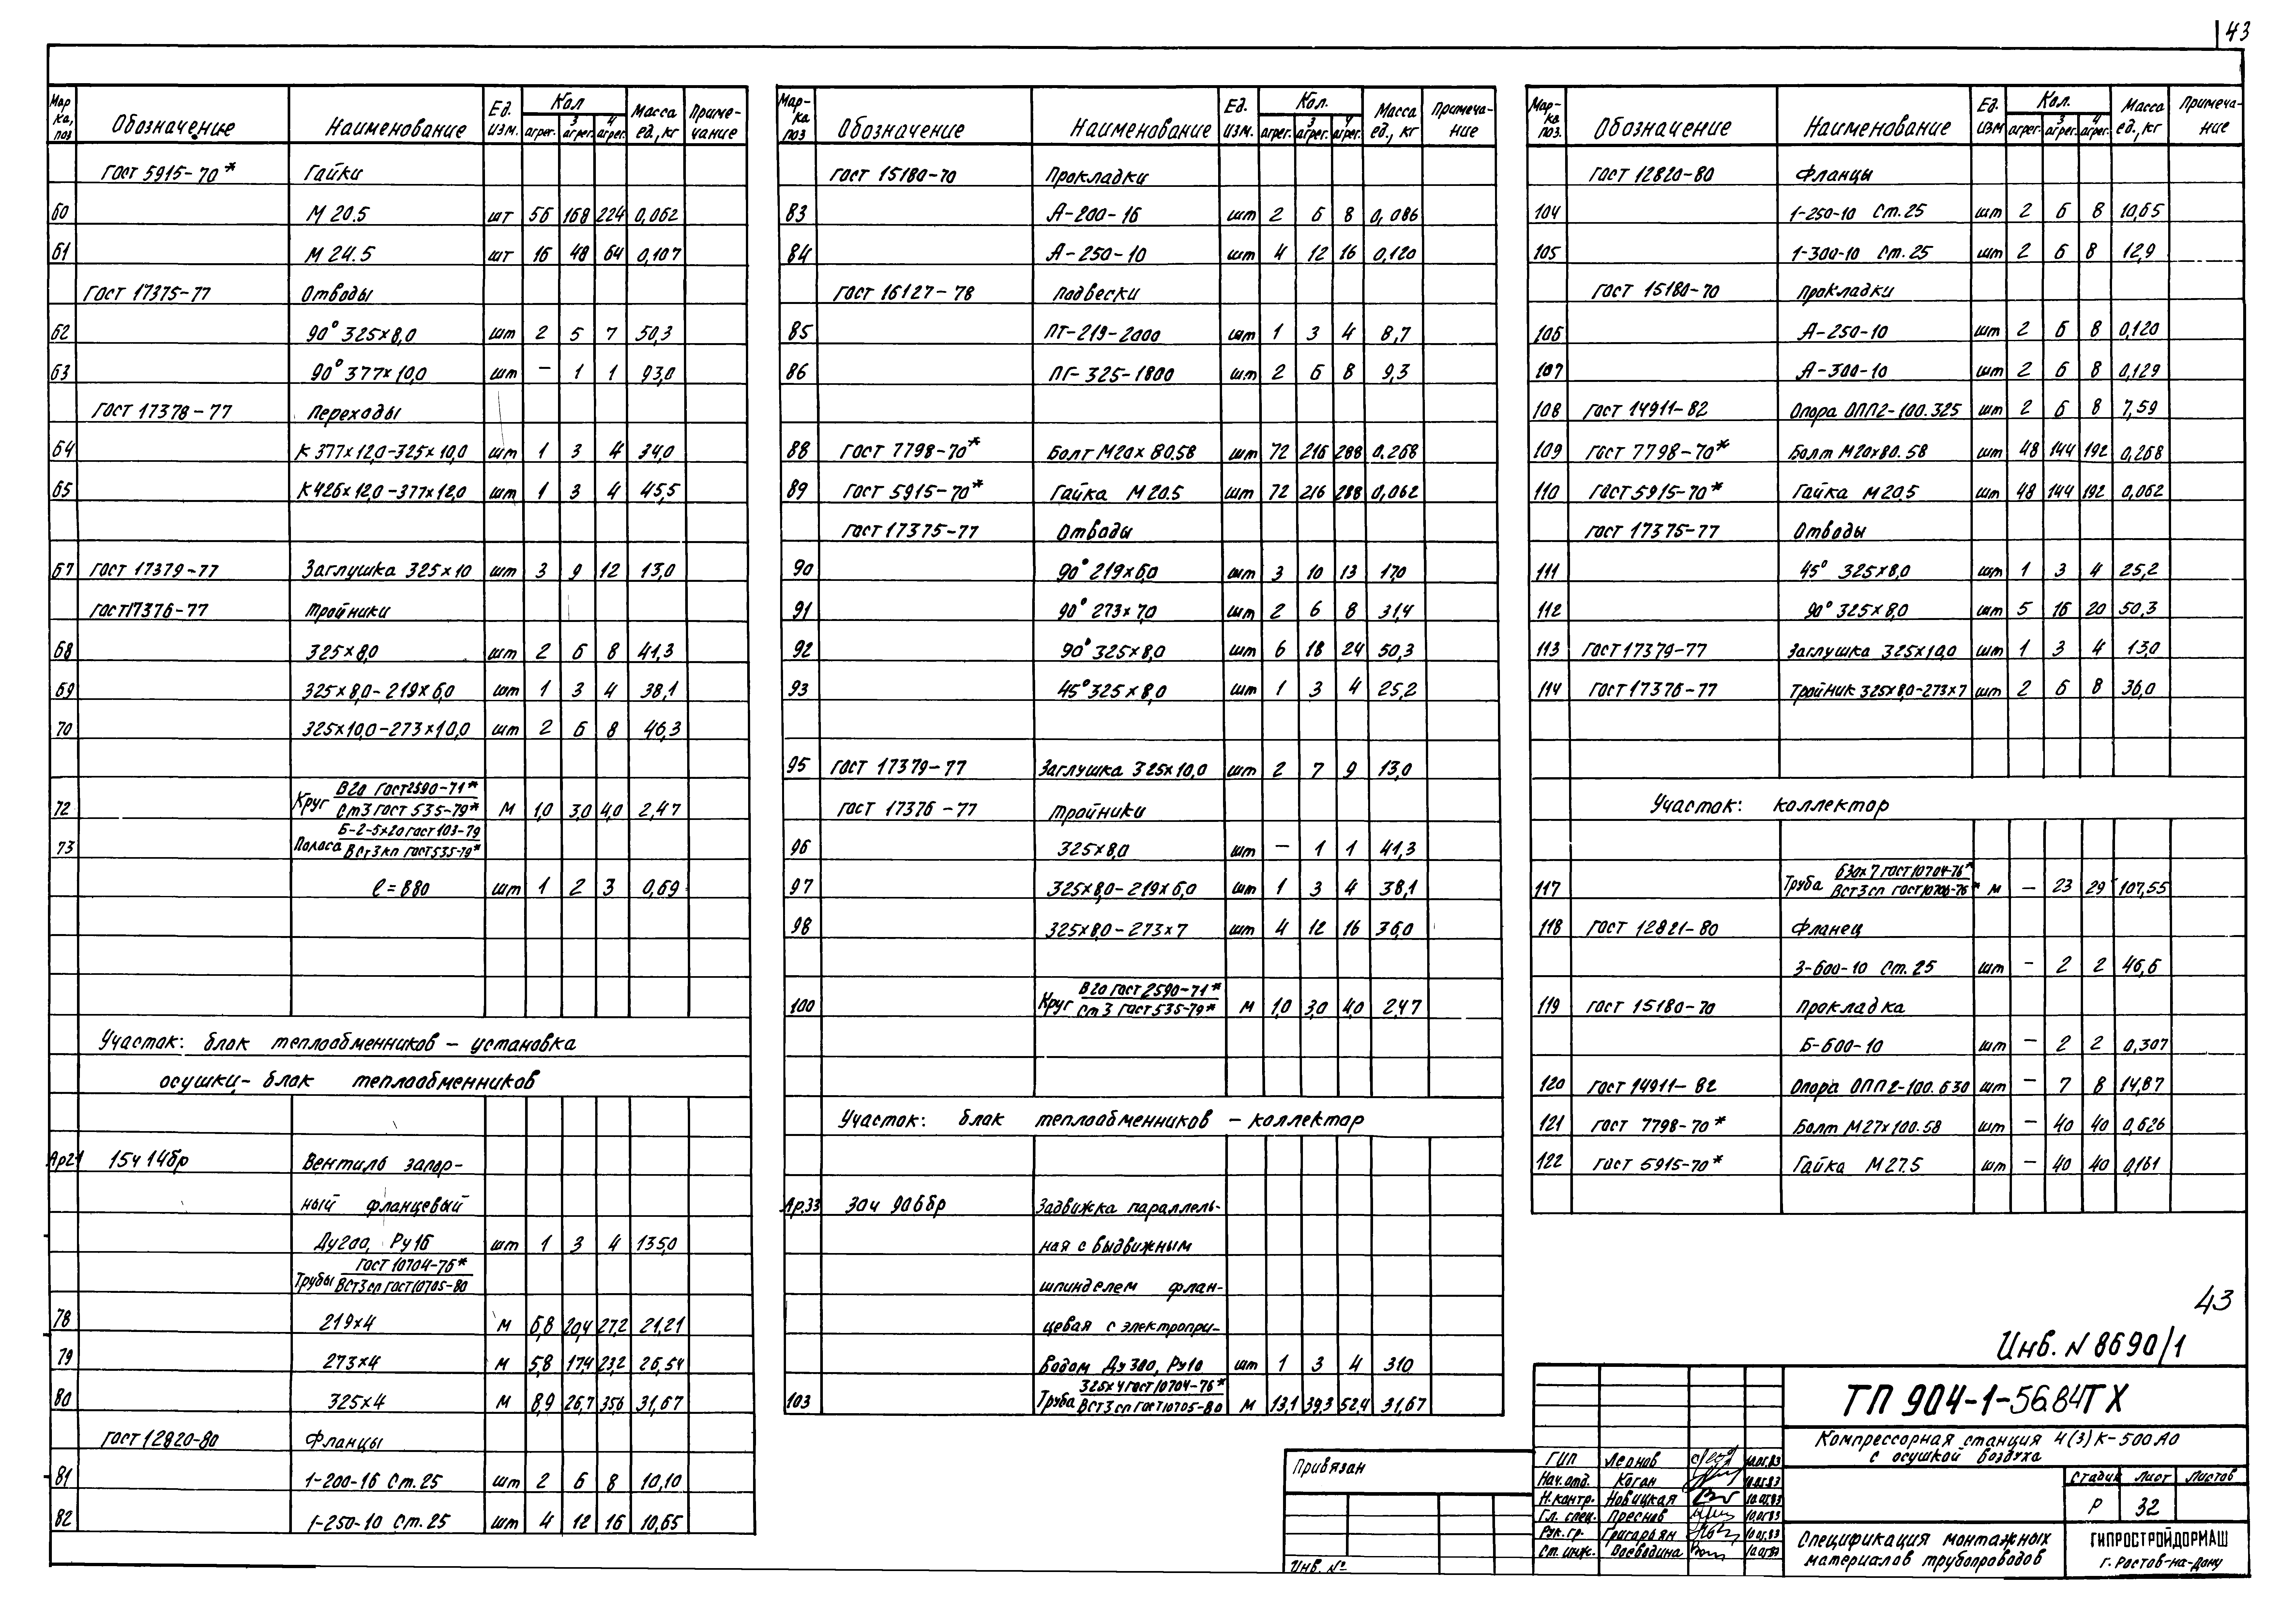 43
Мар ка, поз Обозначение Наименование Ед. изм. Кол агрег. 3 агрег. 4 агрег. Масса ед., кг Примечание
ГОСТ 5915-70* Гайки
60 М 20.5 шт 56 168 224 0,062
61 М 24.5 шт 16 48 64 0,107
ГОСТ 17375-77 Отводы
62 90° 325×8,0 шт 2 5 7 50,3
63 90° 377×10,0 шт – 1 1 93,0
ГОСТ 17378-77 Переходы
64 К 377×12,0-325×10,0 шт 1 3 4 34,0
65 К 426×12,0-377×12,0 шт 1 3 4 45,5
67 ГОСТ 17379-77 Заглушка 325×10 шт 3 9 12 13,0
ГОСТ 17376-77 Тройники
68 325×8,0 шт 2 6 8 41,3
69 325×8,0-219×6,0 шт 1 3 4 38,1
70 325×10,0-273×10,0 шт 2 6 8 46,3
72 Круг В20 ГОСТ 2590-71* / Ст3 ГОСТ 535-79* М 1,0 3,0 4,0 2,47
73 Полоса Б-2-5×20 ГОСТ 103-79 / ВСт3кп ГОСТ 535-79*
ℓ = 880 шт 1 2 3 0,69
Участок: блок теплообменников – установка
осушки- блок теплообменников
Ар21 15ч 14бр Вентиль запор-
ный фланцевый
Ду200, Ру16 шт 1 3 4 135,0
Трубы ГОСТ 10704-76* / ВСт3сп ГОСТ 10705-80
78 219×4 М 6,8 20,4 27,2 21,21
79 273×4 М 5,8 17,4 23,2 26,54
80 325×4 М 8,9 26,7 35,6 31,67
ГОСТ 12820-80 Фланцы
81 1-200-16 Ст.25 шт 2 6 8 10,10
82 1-250-10 Ст.25 шт 4 12 16 10,65
Мар-ка поз Обозначение Наименование Ед. изм. Кол. агрег. 3 агрег. 4 агрег. Масса ед., кг Примечание
ГОСТ 15180-70 Прокладки
83 А-200-16 шт 2 6 8 0,086
84 А-250-10 шт 4 12 16 0,120
ГОСТ 16127-78 Подвески
85 ПГ-219-2000 шт 1 3 4 8,7
86 ПГ-325-1800 шт 2 6 8 9,3
88 ГОСТ 7798-70* Болт М20×80.58 шт 72 216 288 0,268
89 ГОСТ 5915-70* Гайка М20.5 шт 72 216 288 0,062
ГОСТ 17375-77 Отводы
90 90° 219×6,0 шт 3 10 13 17,0
91 90° 273×7,0 шт 2 6 8 31,4
92 90° 325×8,0 шт 6 18 24 50,3
93 45° 325×8,0 шт 1 3 4 25,2
95 ГОСТ 17379-77 Заглушка 325×10,0 шт 2 7 9 13,0
ГОСТ 17376-77 Тройники
96 325×8,0 шт – 1 1 41,3
97 325×8,0-219×6,0 шт 1 3 4 38,1
98 325×8,0-273×7 шт 4 12 16 36,0
100 Круг В20 ГОСТ 2590-71* / Ст3 ГОСТ 535-79* М 1,0 3,0 4,0 2,47
Участок: блок теплообменников – коллектор
Ар.33 30ч 906бр Задвижка параллель-
ная с выдвижным
шпинделем флан-
цевая с электропри-
водом Ду300, Ру10 шт 1 3 4 310
103 Труба 325×4 ГОСТ 10704-76* / ВСт3сп ГОСТ 10705-80 М 13,1 39,3 52,4 31,67
Мар-ка поз. Обозначение Наименование Ед. изм Кол. агрег. 3 агрег. 4 агрег. Масса ед., кг Примечание
ГОСТ 12820-80 Фланцы
104 1-250-10 Ст.25 шт 2 6 8 10,65
105 1-300-10 Ст.25 шт 2 6 8 12,9
ГОСТ 15180-70 Прокладки
106 А-250-10 шт 2 6 8 0,120
107 А-300-10 шт 2 6 8 0,129
108 ГОСТ 14911-82 Опора ОПП2-100.325 шт 2 6 8 7,59
109 ГОСТ 7798-70* Болт М20×80.58 шт 48 144 192 0,268
110 ГОСТ 5915-70* Гайка М20.5 шт 48 144 192 0,062
ГОСТ 17375-77 Отводы
111 45° 325×8,0 шт 1 3 4 25,2
112 90° 325×8,0 шт 5 16 20 50,3
113 ГОСТ 17379-77 Заглушка 325×10,0 шт 1 3 4 13,0
114 ГОСТ 17376-77 Тройник 325×8,0-273×7 шт 2 6 8 36,0
Участок: коллектор
117 Труба 630×7 ГОСТ 10704-76* / ВСт3сп ГОСТ 10706-76* М – 23 29 107,55
118 ГОСТ 12821-80 Фланец
3-600-10 Ст.25 шт – 2 2 46,6
119 ГОСТ 15180-70 Прокладка
Б-600-10 шт – 2 2 0,307
120 ГОСТ 14911-82 Опора ОПП2-100.630 шт – 7 8 14,87
121 ГОСТ 7798-70* Болт М27×100.58 шт – 40 40 0,626
122 ГОСТ 5915-70* Гайка М27.5 шт – 40 40 0,161
43
Инв. N 8690/1
ТП 904-1-56.84 ТХ
Компрессорная станция 4(3)К-500АО
с осушкой воздуха
Стадия Лист Листов
Р 32
Спецификация монтажных
материалов трубопроводов
ГИПРОСТРОЙДОРМАШ
г. Ростов-на-Дону
Привязан
Инв. №
ГИП Леонов 10.05.83
Нач.отд. Коган 10.05.83
Н.контр. Новицкая 10.05.83
Гл. спец. Преснов 10.05.83
Рук. гр. Григорьян 10.05.83
Ст. инж. Воеводина 10.05.83